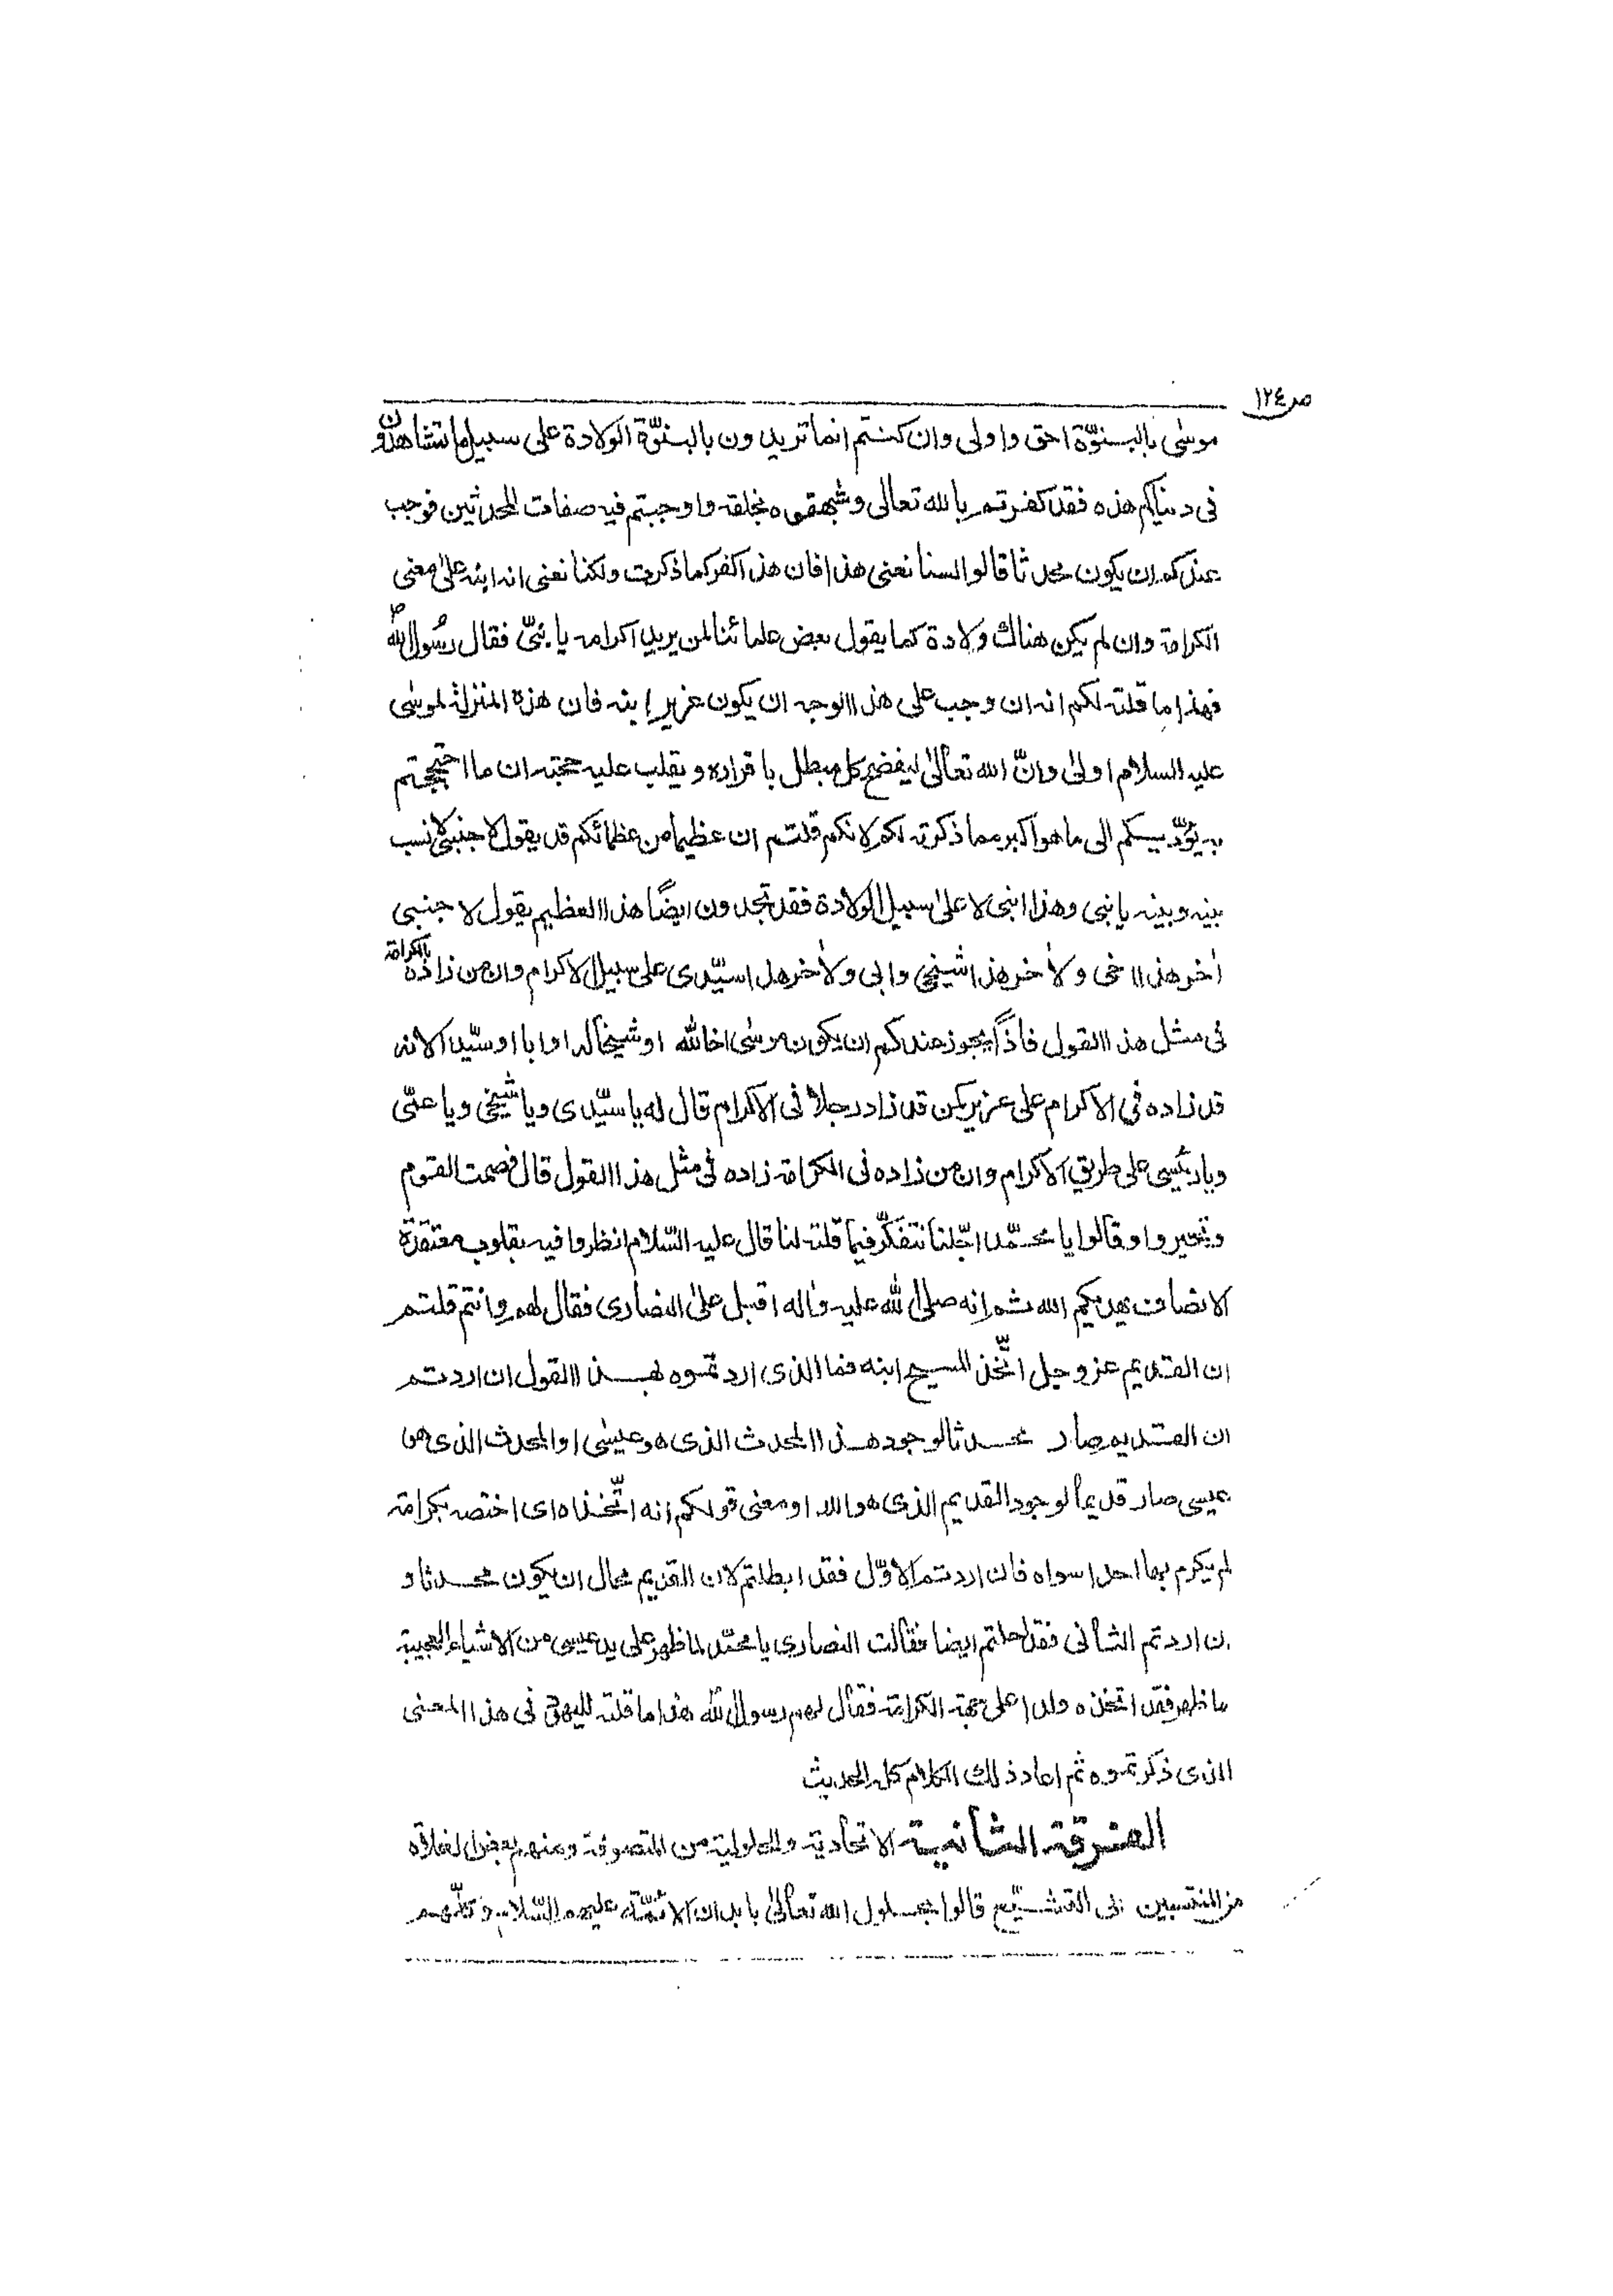 ص ١٢٤
موسٰى بالبنوّة احق واولى وان كنتم انما تريدون بالبنوّة الولادة على سبيل ما تشاهدون
فى دنياكم هذه فقد كفرتم بالله تعالى وشبهتموه بخلقه واوجبتم فيه صفات المحدثين فوجب
عندكم ان يكون محدثا قالوا لسنا نعنى هذا فان هذا كفر كما ذكرت ولكنا نعنى انه ابنه على معنى
الكرامة وان لم يكن هناك ولادة كما يقول بعض علمائنا لمن يريد اكرامه يا بنىّ فقال رسُول الله ص
فهذا ما قلته لكم انه ان وجب على هذا الوجه ان يكون عزير ابنه فان هذه المنزلة لموسٰى
عليه السلام اولىٰ وانّ الله تعالىٰ ليفضح كل مبطل باقراره و يقلب عليه حجته ان ما احتججتم
به يؤدّيكم الى ما هو اكبر مما ذكرته لكم لانكم قلتم ان عظيما من عظمائكم قد يقول لاجنبى لا نسب
بينه وبينه يا بنى وهذا ابنى لا على سبيل الولادة فقد تجدون ايضًا هذا العظيم يقول لاجنبى
اٰخر هذا اخى ولاٰخر هذا شيخى وابى ولاٰخر هذا سيّدى على سبيل الاكرام وان من زاده بالكرامة
فى مثل هذا القول فاذًا يجوز عندكم ان يكون موسٰى اخا لله او شيخا له او ابا او سيّدا لانه
قد زاده فى الاكرام على عزير كمن قد زاد رجلا فى الاكرام قال له يا سيّدى ويا شيخى ويا عمّى
ويا رئيسى على طريق الاكرام وان من زاده فى الكرامة زاده فى مثل هذا القول قال فصمت القوم
وتحيروا وقالوا يا محمّد اجّلنا نتفكّر فيما قلته لنا قال عليه السّلام انظروا فيه بقلوب معتقدة
الانصاف يهديكم الله ثم انه صلى الله عليه واٰله اقبل على النصارى فقال لهم وانتم قلتم
ان القديم عز وجل اتّخذ المسيح ابنه فما الذى اردتموه بهذا القول ان اردتم
ان القديم صار محدثا لوجود هذا المحدث الذى هو عيسٰى او المحدث الذى هو
عيسى صار قديما لوجود القديم الذى هو الله او معنى قولكم انه اتّخذه اى اختصه بكرامة
لم يكرم بها احدا سواه فان اردتم الاوّل فقد ابطلتم لان القديم محال ان يكون محدثا و
ان اردتم الثانى فقد احلتم ايضا فقالت النصارى يا محمّد لما ظهر على يد عيسى من الاشياء العجيبة
ما ظهر فقد اتخذه ولدا على جهة الكرامة فقال لهم رسول الله هذا ما قلته لليهود فى هذا المعنى
الذى ذكرتموه ثم اعاد ذلك الكلام كله الحديث
الفرقة الثانية الاتحادية والحلولية من المتصوفة ومنهم بعض الغلاة
من المنتسبين الى التشيّع قالوا بحلول الله تعالىٰ بابدان الائمّة عليهم السّلام